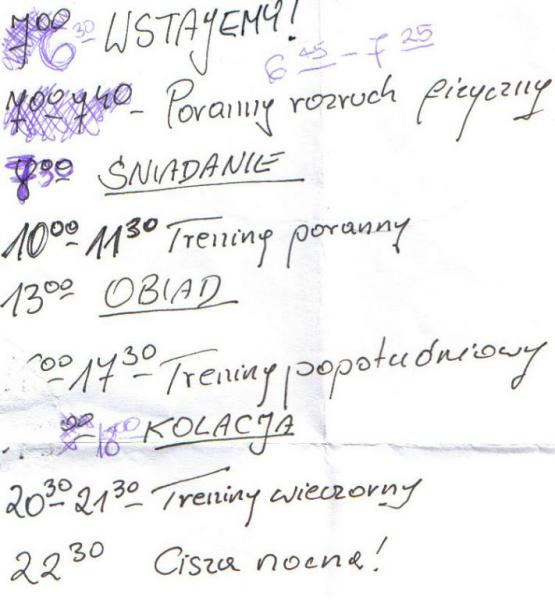 6³⁰ WSTAJEMY!
6⁴⁵ – 7²⁵
Poranny rozruch fizyczny
7³⁰ ŚNIADANIE
10⁰⁰ - 11³⁰ Trening poranny
13⁰⁰ OBIAD
⁰⁰ - 17³⁰ - Trening popołudniowy
18⁰⁰ KOLACJA
20³⁰ - 21³⁰ - Trening wieczorny
22³⁰ Cisza nocna!